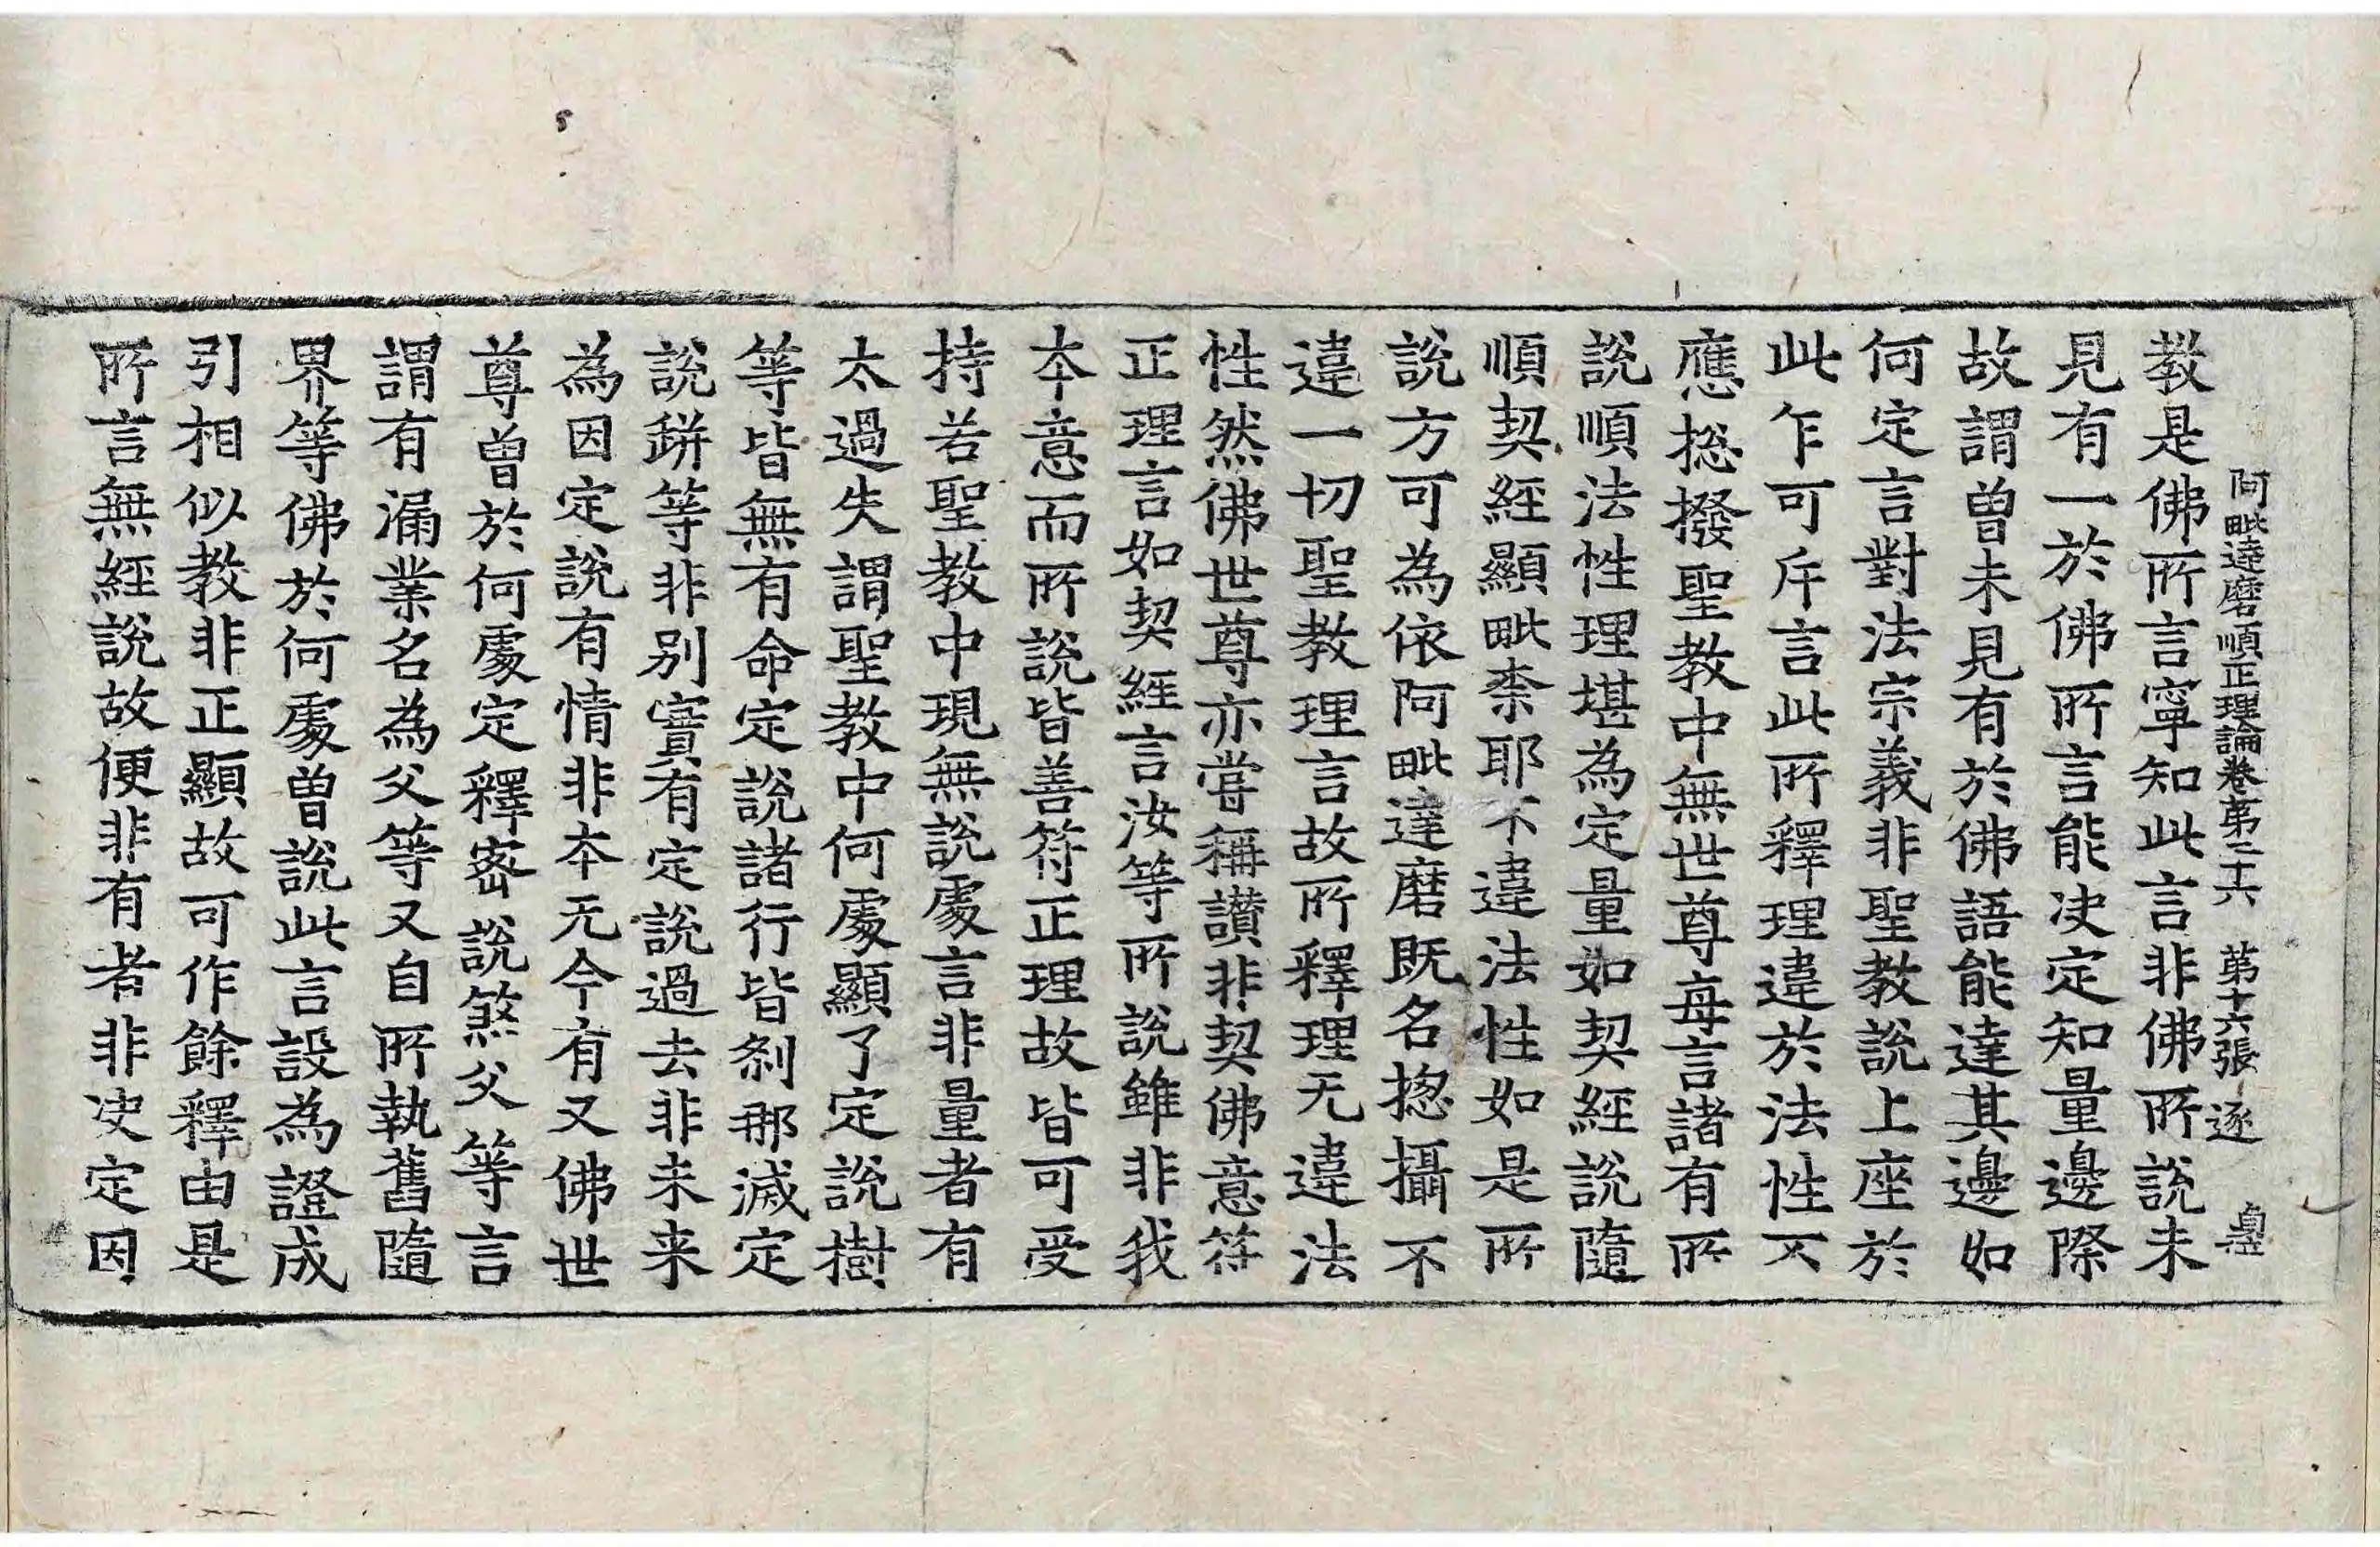 阿毗達磨順正理論卷第二十六 第十六張 逐
教是佛所言寧知此言非佛所說未
見有一於佛所言能决定知量邊際
故謂曾未見有於佛語能達其邊如
何定言對法宗義非聖教說上座於
此乍可斥言此所釋理違於法性不
應揔撥聖教中無世尊每言諸有所
說順法性理堪為定量如契經說隨
順契經顯毗柰耶不違法性如是所
說方可為依阿毗達磨既名揔攝不
違一切聖教理言故所釋理无違法
性然佛世尊亦甞稱讃非契佛意符
正理言如契經言汝等所說雖非我
本意而所說皆善符正理故皆可受
持若聖教中現無說處言非量者有
太過失謂聖教中何處顯了定說樹
等皆無有命定說諸行皆剎那滅定
說缾等非別實有定說過去非未来
為因定說有情非本无今有又佛世
尊曾於何處定釋密說煞父等言
謂有漏業名為父等又自所執舊隨
界等佛於何處曾說此言設為證成
引相似教非正顯故可作餘釋由是
所言無經說故便非有者非决定因